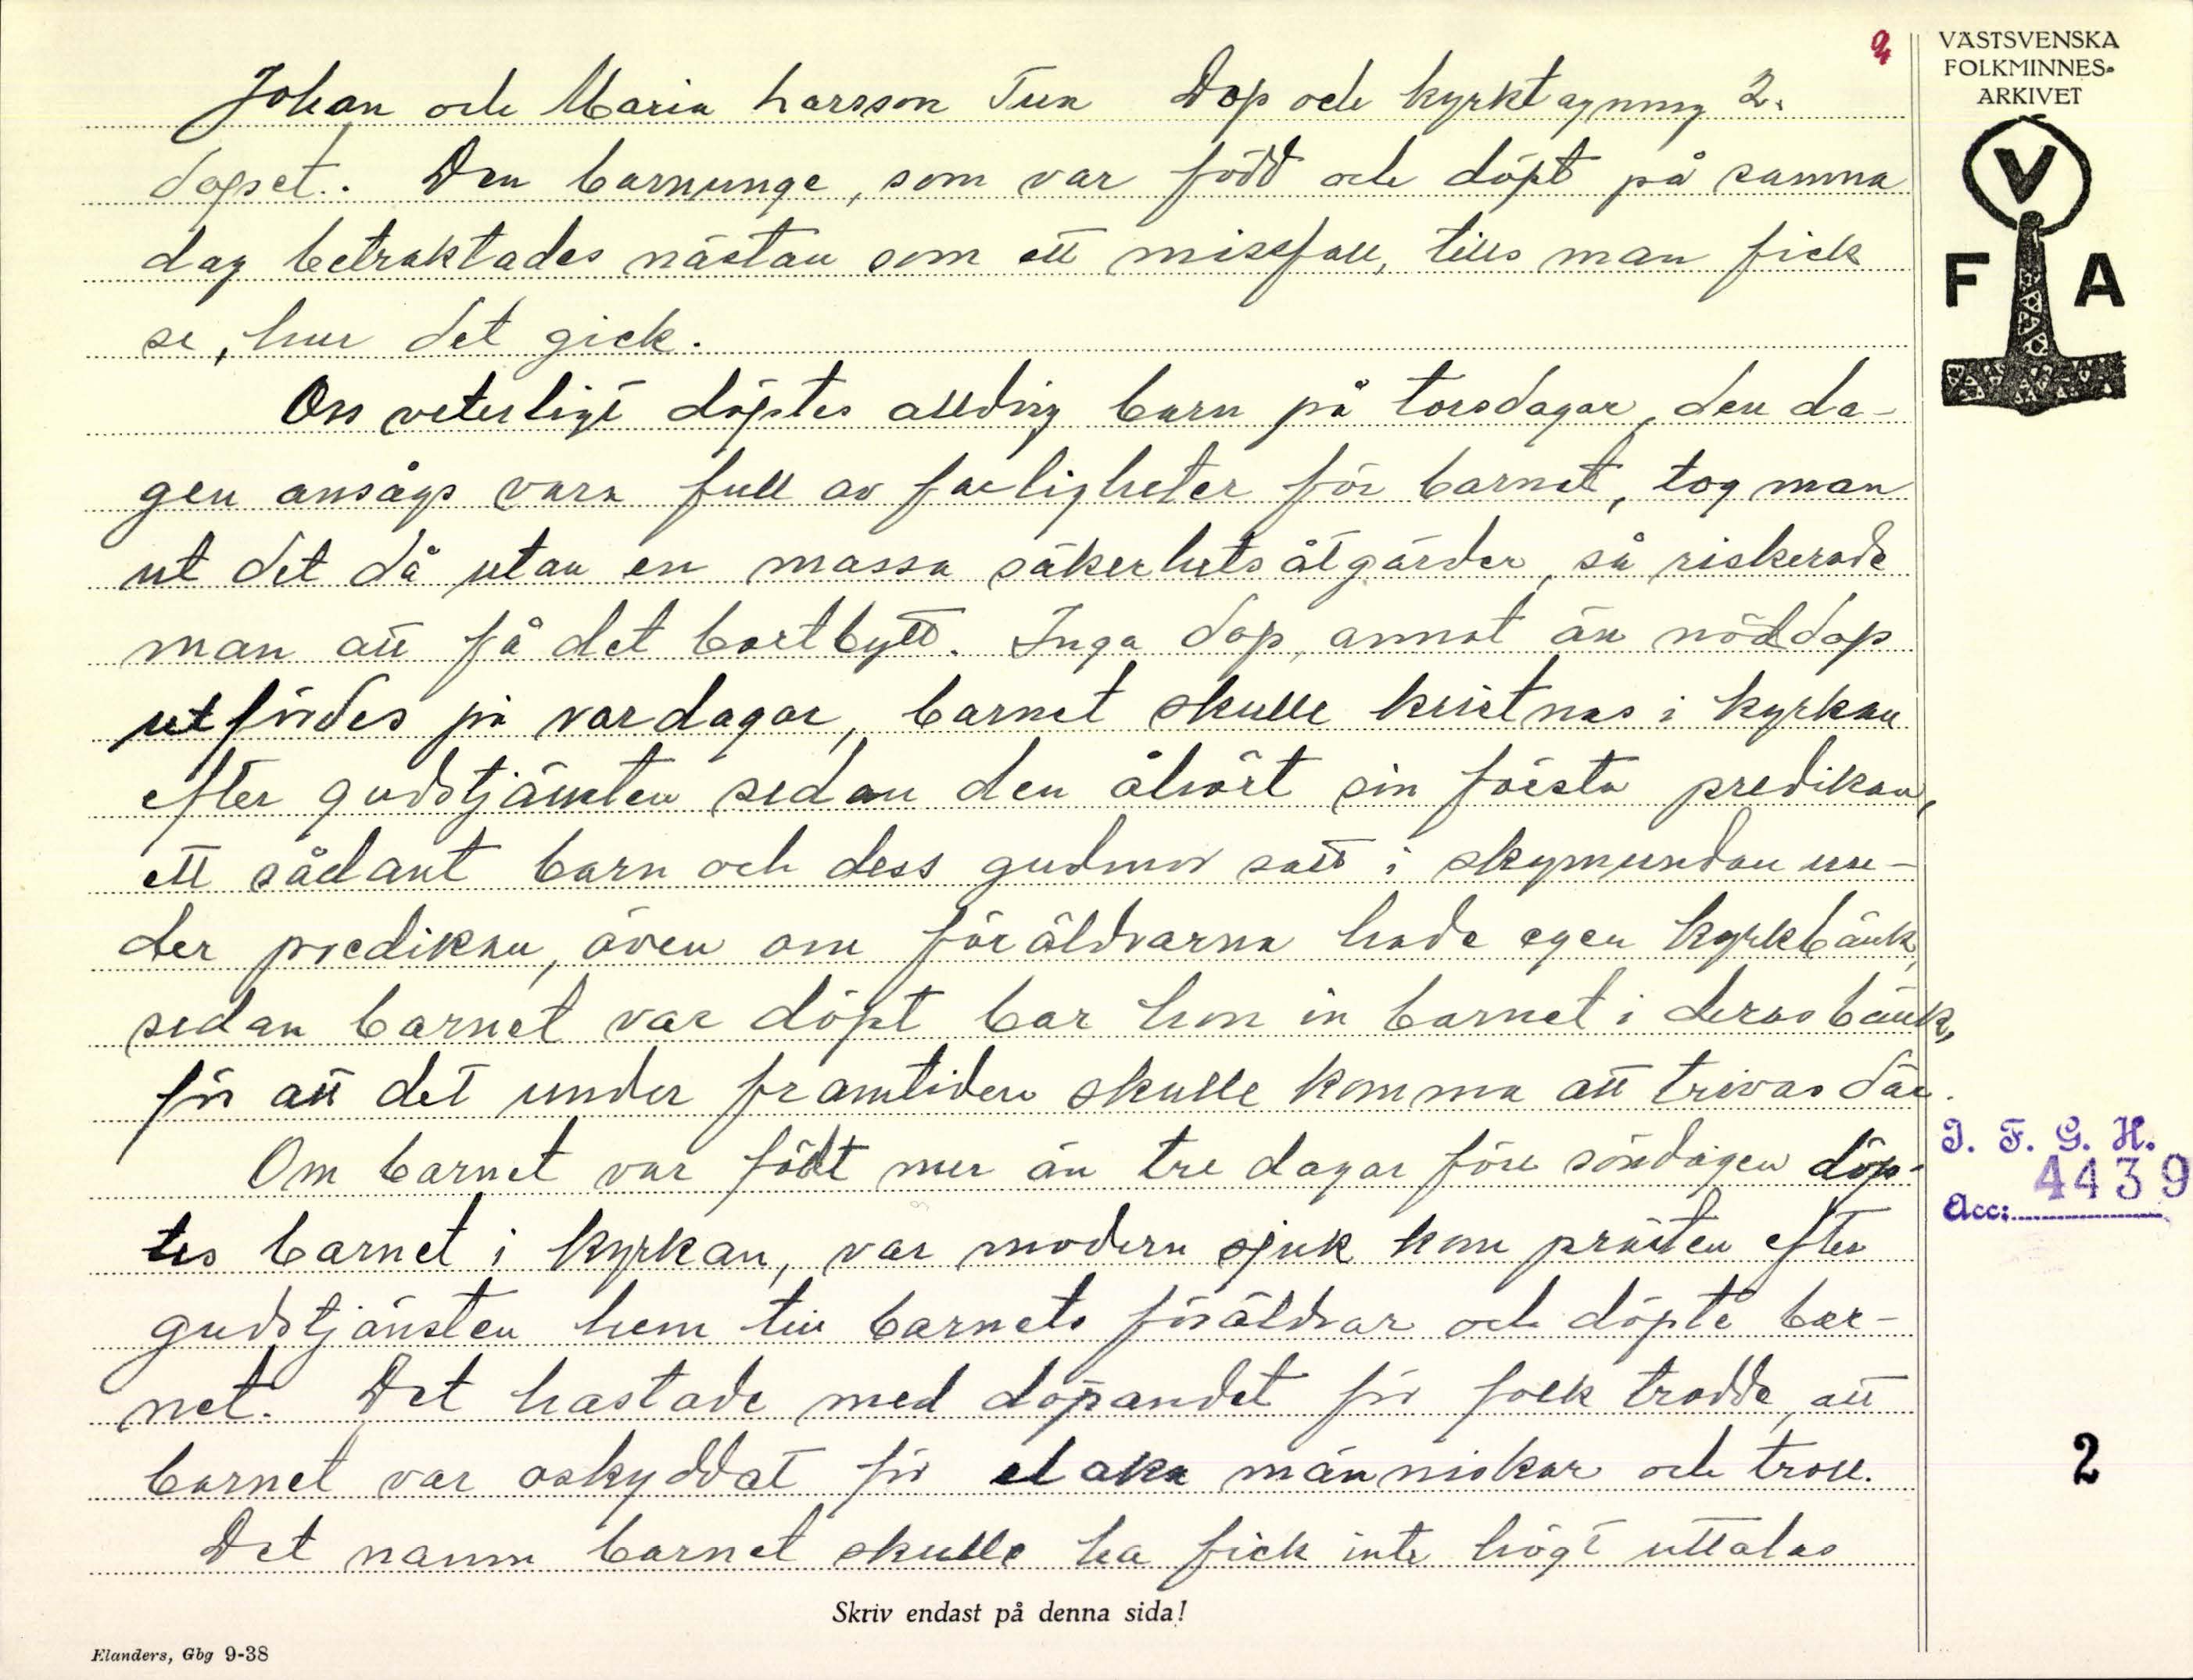 Johan och Maria Larsson Tun Dop och kyrktagning 2.
dopet. Den barnunge, som var född och döpt på samma
dag betraktades nästan som ett missfall, tills man fick
se, hur det gick.
Oss veterligt döptes alldrig barn på torsdagar, den da-
gen ansågs vara full av farligheter för barnet, tog man
ut det då utan en massa säkerhetsåtgärder, så riskerade
man att få det bortbytt. Inga dop, annat än nöddop
utfördes på vardagar, barnet skulle kristnas i kyrkan
efter gudstjänsten sedan den åhört sin första predikan,
ett sådant barn och dess gudmor satt i skymundan un-
der predikan, även om föräldrarna hade egen kyrkbänk,
sedan barnet var döpt bar hon in barnet i deras bänk,
för att det under framtiden skulle komma att trivas där.
Om barnet var födt mer än tre dagar före söndagen döp-
tes barnet i kyrkan, var modern sjuk kom prästen efter
gudstjänsten hem till barnets föräldrar och döpte bar-
net. Det hastade med döpandet för folk trodde, att
barnet var oskyddat för elaka människor och troll.
Det namn barnet skulle ha fick inte högt uttalas
Skriv endast på denna sida!
Elanders, Gbg 9-38
2
VÄSTSVENSKA
FOLKMINNES-
ARKIVET
V
F A
I. F. G. H.
4439
Acc:
2